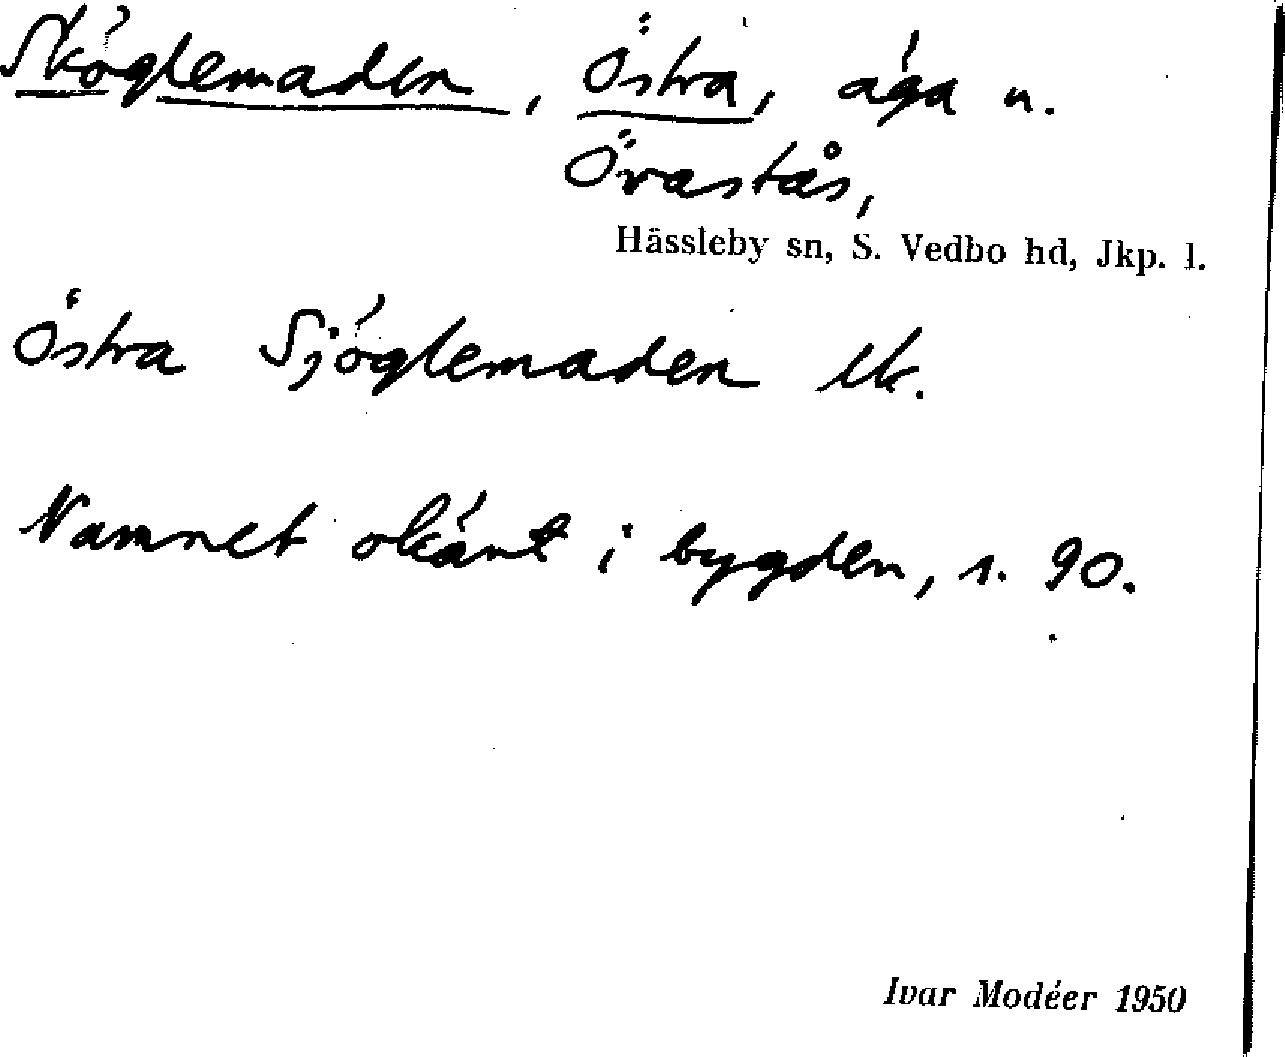 Sköglemaden, Östra, äga u.
Övrastås,
Hässleby sn, S. Vedbo hd, Jkp. l.
Östra Sjöglemaden lk.
Namnet okänt i bygden, s. 90.
Ivar Modéer 1950